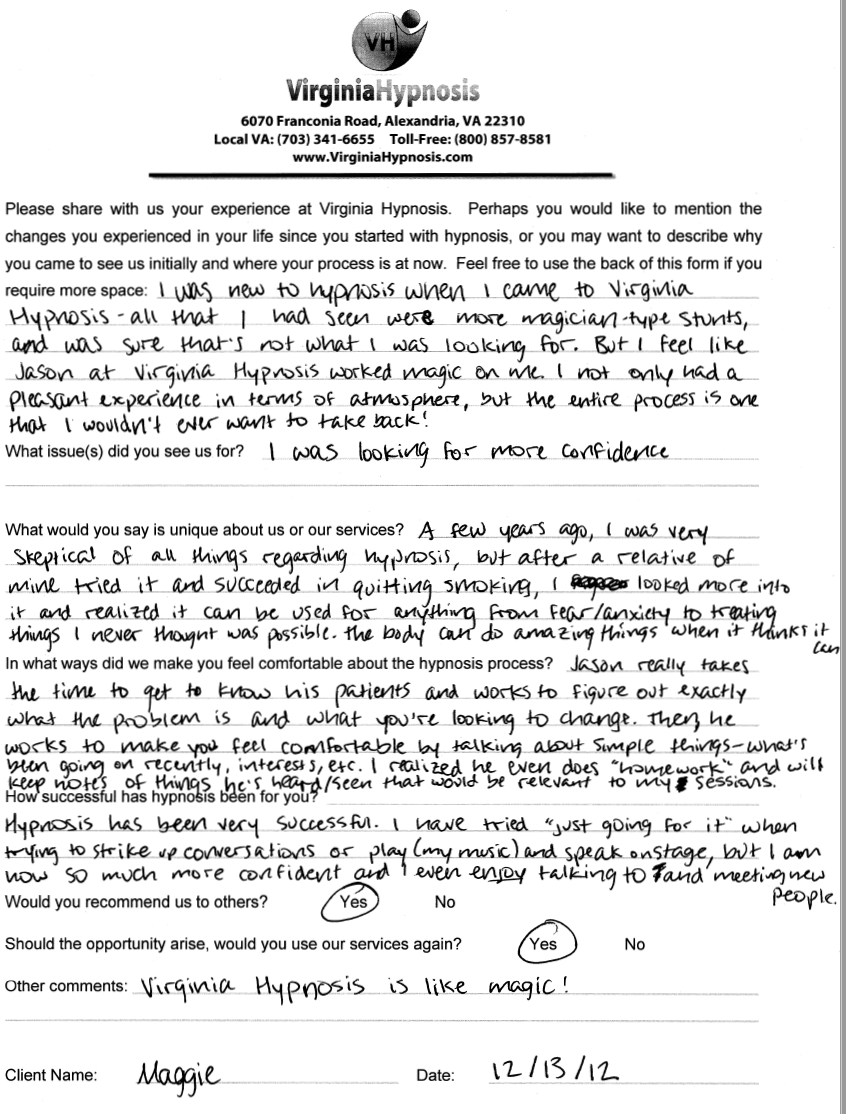 VH
VirginiaHypnosis
6070 Franconia Road, Alexandria, VA 22310
Local VA: (703) 341-6655 Toll-Free: (800) 857-8581
www.VirginiaHypnosis.com
Please share with us your experience at Virginia Hypnosis. Perhaps you would like to mention the
changes you experienced in your life since you started with hypnosis, or you may want to describe why
you came to see us initially and where your process is at now. Feel free to use the back of this form if you
require more space: I was new to hypnosis when I came to Virginia
Hypnosis - all that I had seen were more magician-type stunts,
and was sure that's not what I was looking for. But I feel like
Jason at Virginia Hypnosis worked magic on me. I not only had a
pleasant experience in terms of atmosphere, but the entire process is one
that I wouldn't ever want to take back!
What issue(s) did you see us for? I was looking for more confidence
What would you say is unique about us or our services? A few years ago, I was very
skeptical of all things regarding hypnosis, but after a relative of
mine tried it and succeeded in quitting smoking, I looked more into
it and realized it can be used for anything from fear/anxiety to treating
things I never thought was possible. the body can do amazing things when it thinks it
can
In what ways did we make you feel comfortable about the hypnosis process? Jason really takes
the time to get to know his patients and works to figure out exactly
what the problem is and what you're looking to change. Then, he
works to make you feel comfortable by talking about simple things-what's
been going on recently, interests, etc. I realized he even does "homework" and will
keep notes of things he's heard/seen that would be relevant to my sessions.
How successful has hypnosis been for you?
Hypnosis has been very successful. I have tried "just going for it" when
trying to strike up conversations or play (my music) and speak onstage, but I am
now so much more confident and I even enjoy talking to and meeting new
people.
Would you recommend us to others? Yes No
Should the opportunity arise, would you use our services again? Yes No
Other comments: Virginia Hypnosis is like magic!
Client Name: Maggie Date: 12/13/12